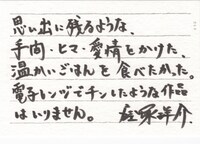 思い出に残るような、
手間・ヒマ・愛情をかけた、
温かいごはんを食べたかった。
電子レンジでチンしたような作品
はいりません。 塚洋介